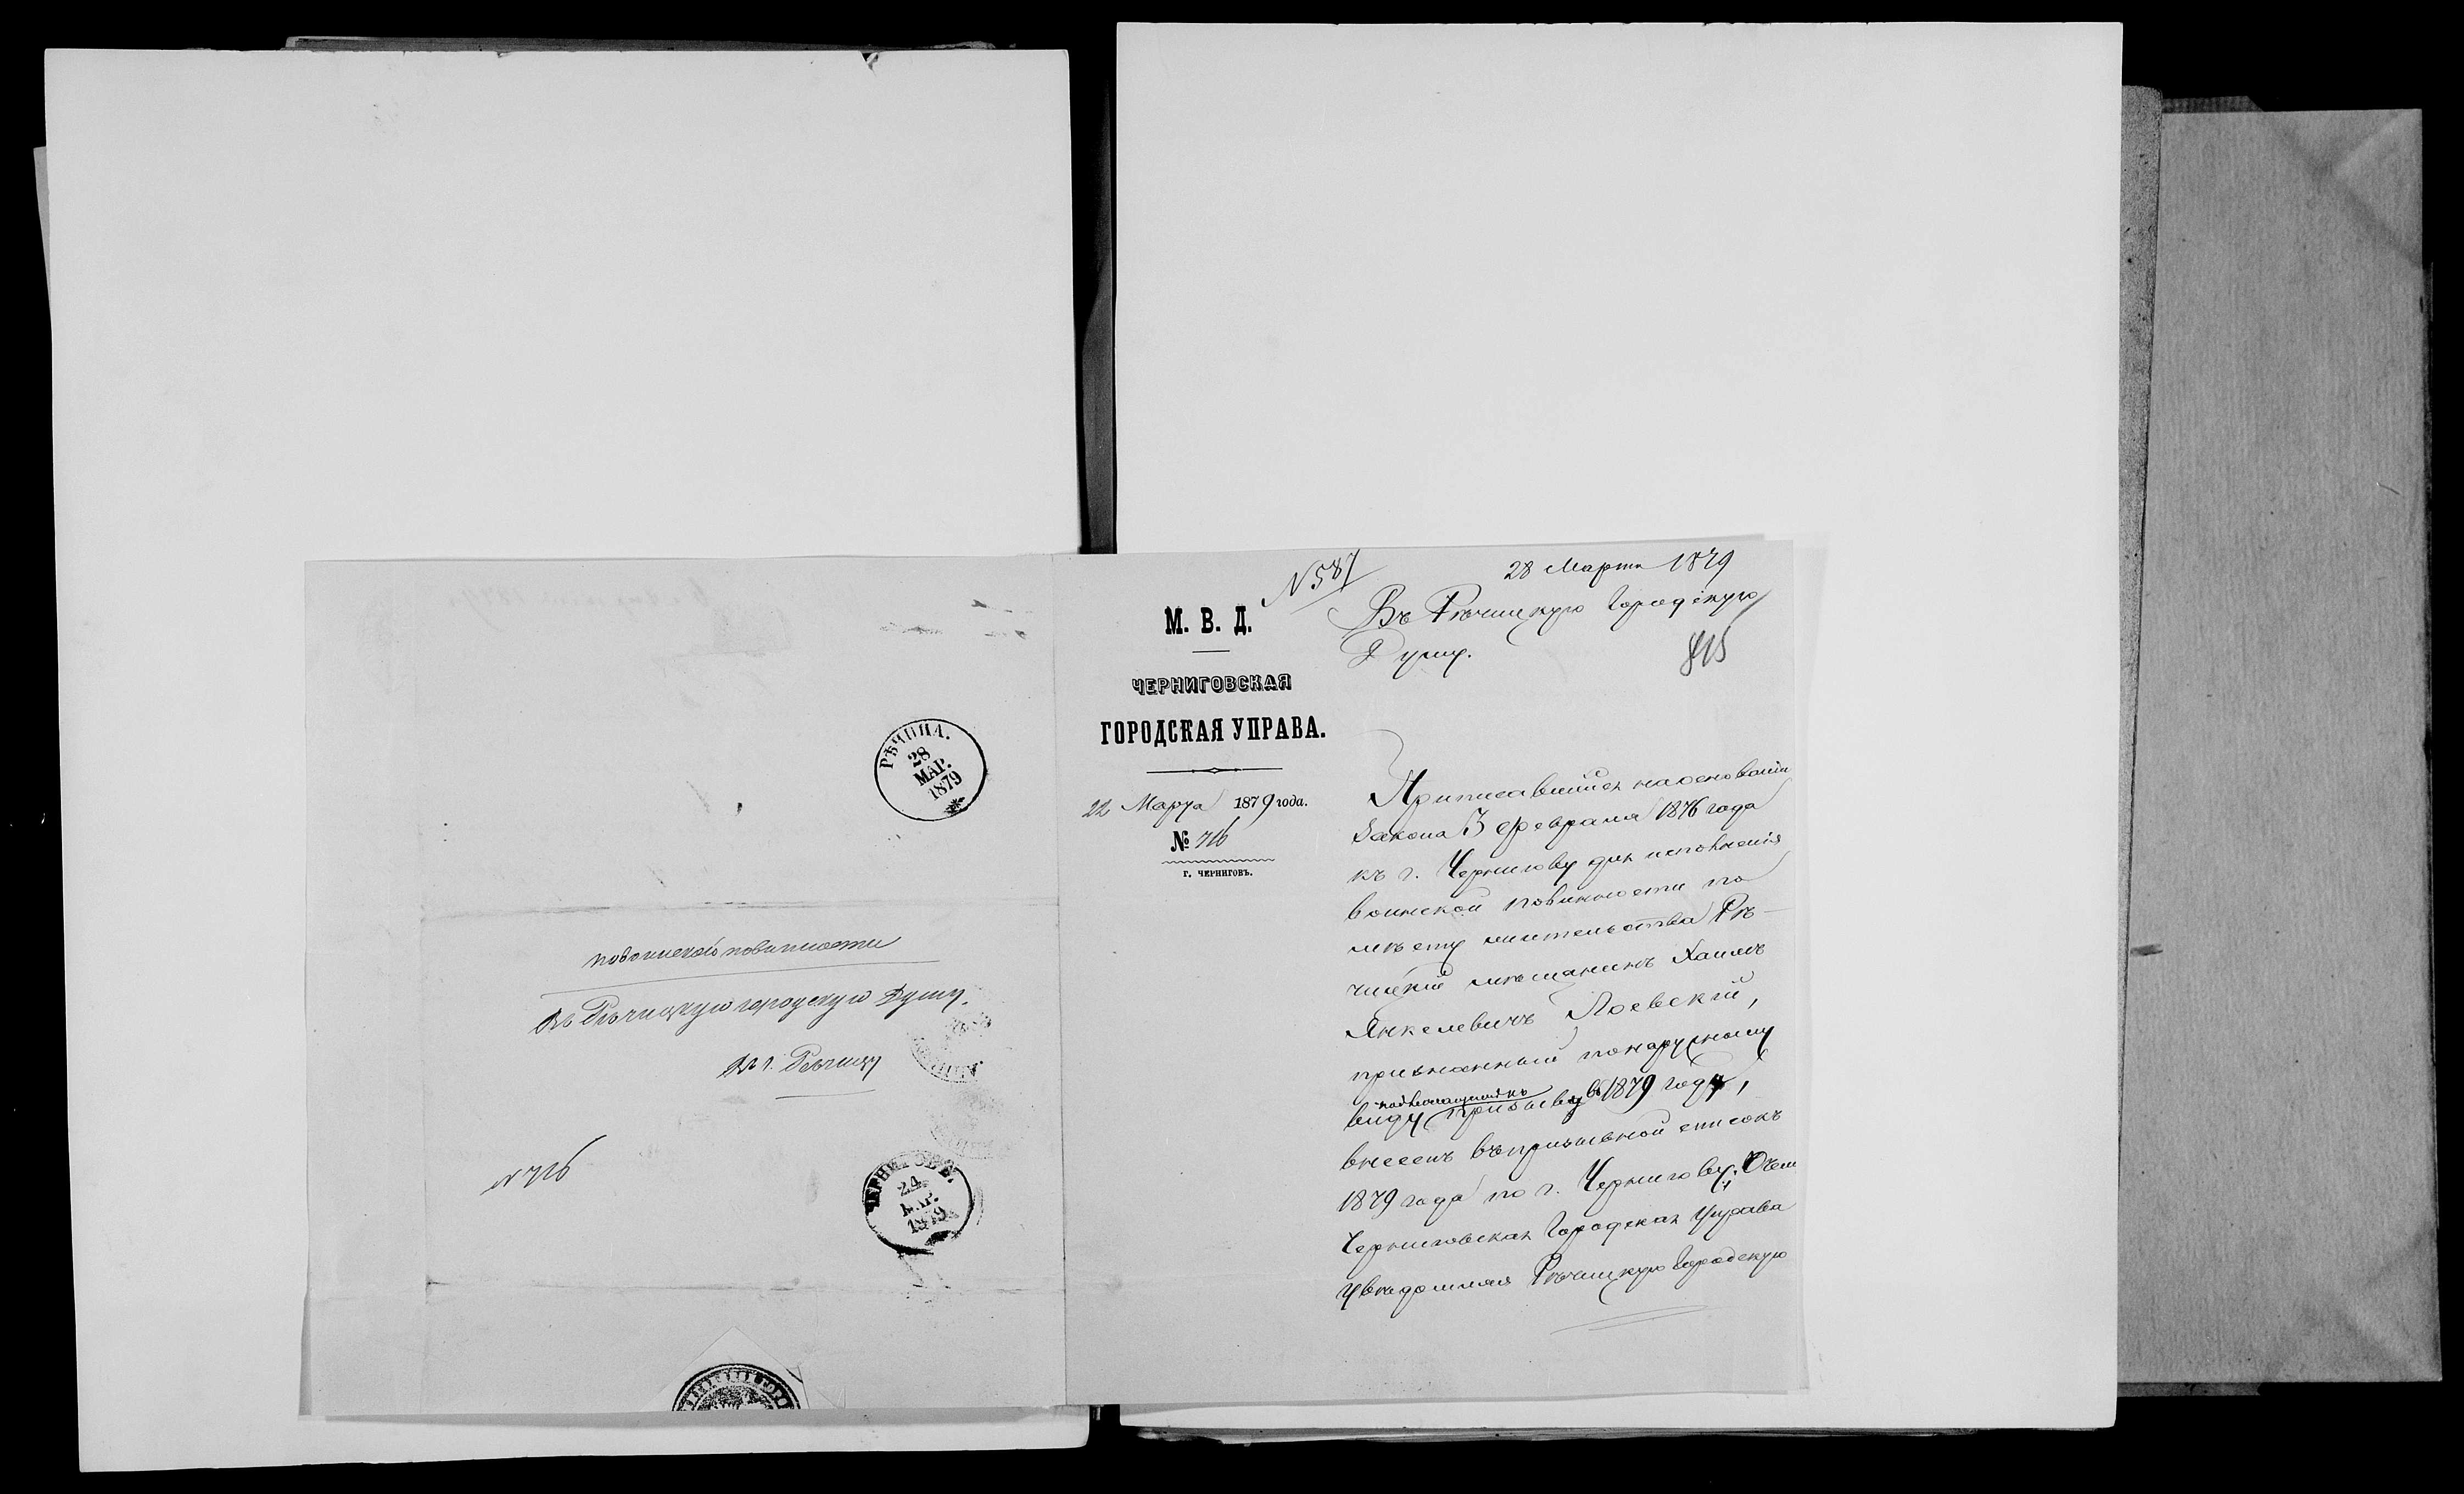 РѢЧИЦА.
28
МАР.
1879
по воинской повинности
Въ Рѣчицкую городскую Думу.
Въ г. Рѣчицу
№ 716
ЧЕРНИГОВЪ.
24
МАР.
1879
№ 587
М. В. Д.
ЧЕРНИГОВСКАЯ
ГОРОДСКАЯ УПРАВА.
22 Марта 1879 года.
№ 716
г. ЧЕРНИГОВЪ.
28 Марта 1879
Въ Рѣчицкую Городскую
Думу.
Приписавшійся на основаніи
Закона 3 февраля 1876 года
къ г. Чернигову для исполненія
воинской повинности по
мѣсту жительства Рѣ-
чицкій мѣщанинъ Хаимъ
Янкелевичъ Лоевскій,
признанный по наружному
виду подлежащимъ къ призыву въ 1879 году,
внесенъ въ призывной списокъ
1879 года по г. Чернигову. О чемъ
Черниговская Городская Управа
увѣдомляя Рѣчицкую Городскую